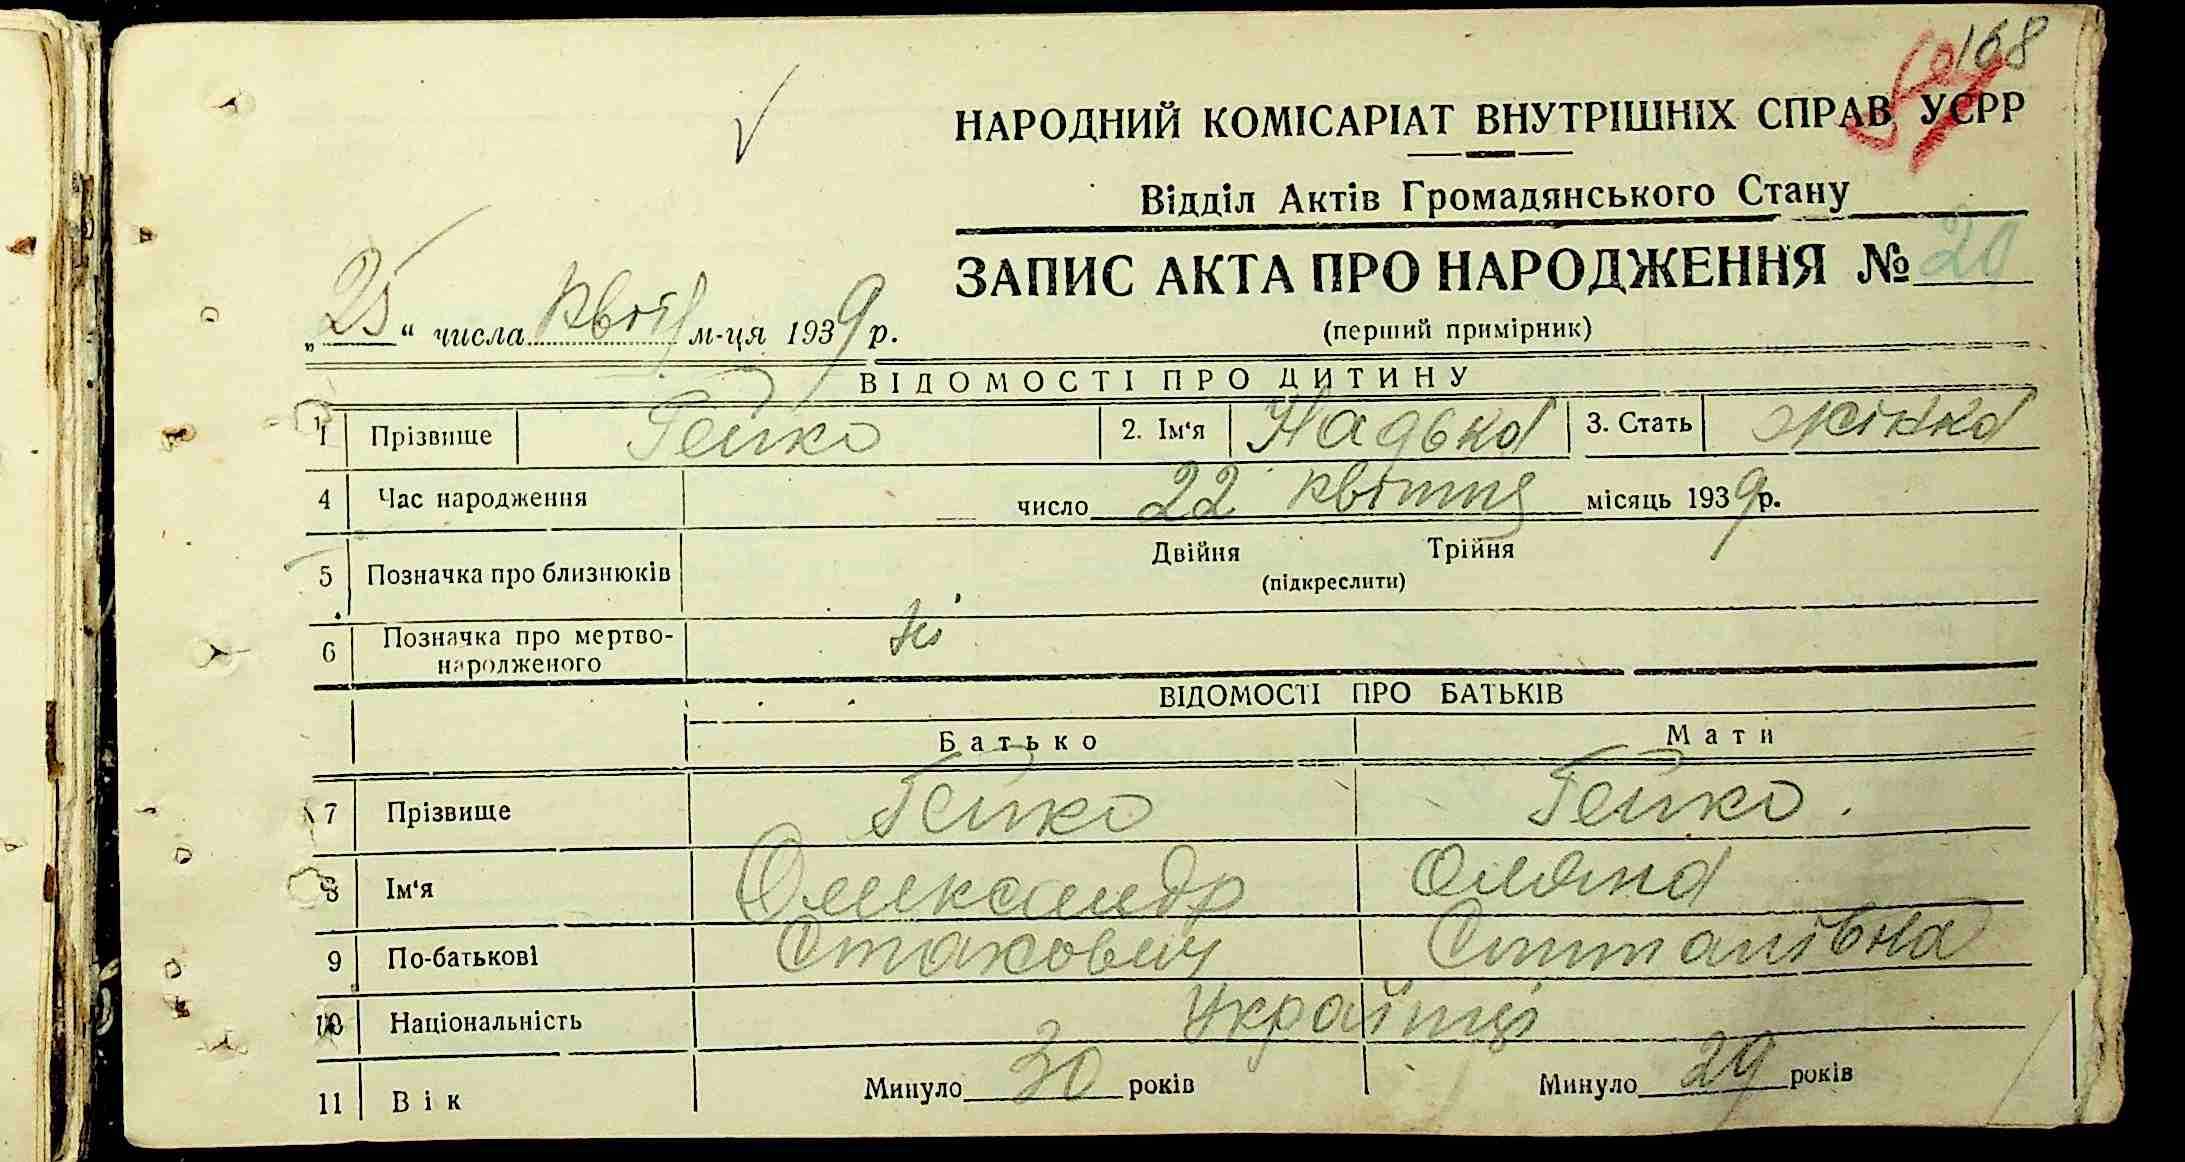 168
НАРОДНИЙ КОМІСАРІАТ ВНУТРІШНІХ СПРАВ УСРР
Відділ Актів Громадянського Стану
ЗАПИС АКТА ПРО НАРОДЖЕННЯ № 20
(перший примірник)
„25“ числа квітня м-ця 1939 р.
ВІДОМОСТІ ПРО ДИТИНУ
1 Прізвище Гейко 2. Ім‘я Надька 3. Стать жінка
4 Час народження число 22 квітня місяць 1939 р.
5 Позначка про близнюків Двійня Трійня
(підкреслити)
6 Позначка про мертво-
народженого ні
ВІДОМОСТІ ПРО БАТЬКІВ
Батько Мати
7 Прізвище Гейко Гейко.
8 Ім‘я Олександр Оляна
9 По-батькові Стахович Степанівна
10 Національність Українці
11 Вік Минуло 30 років Минуло 29 років